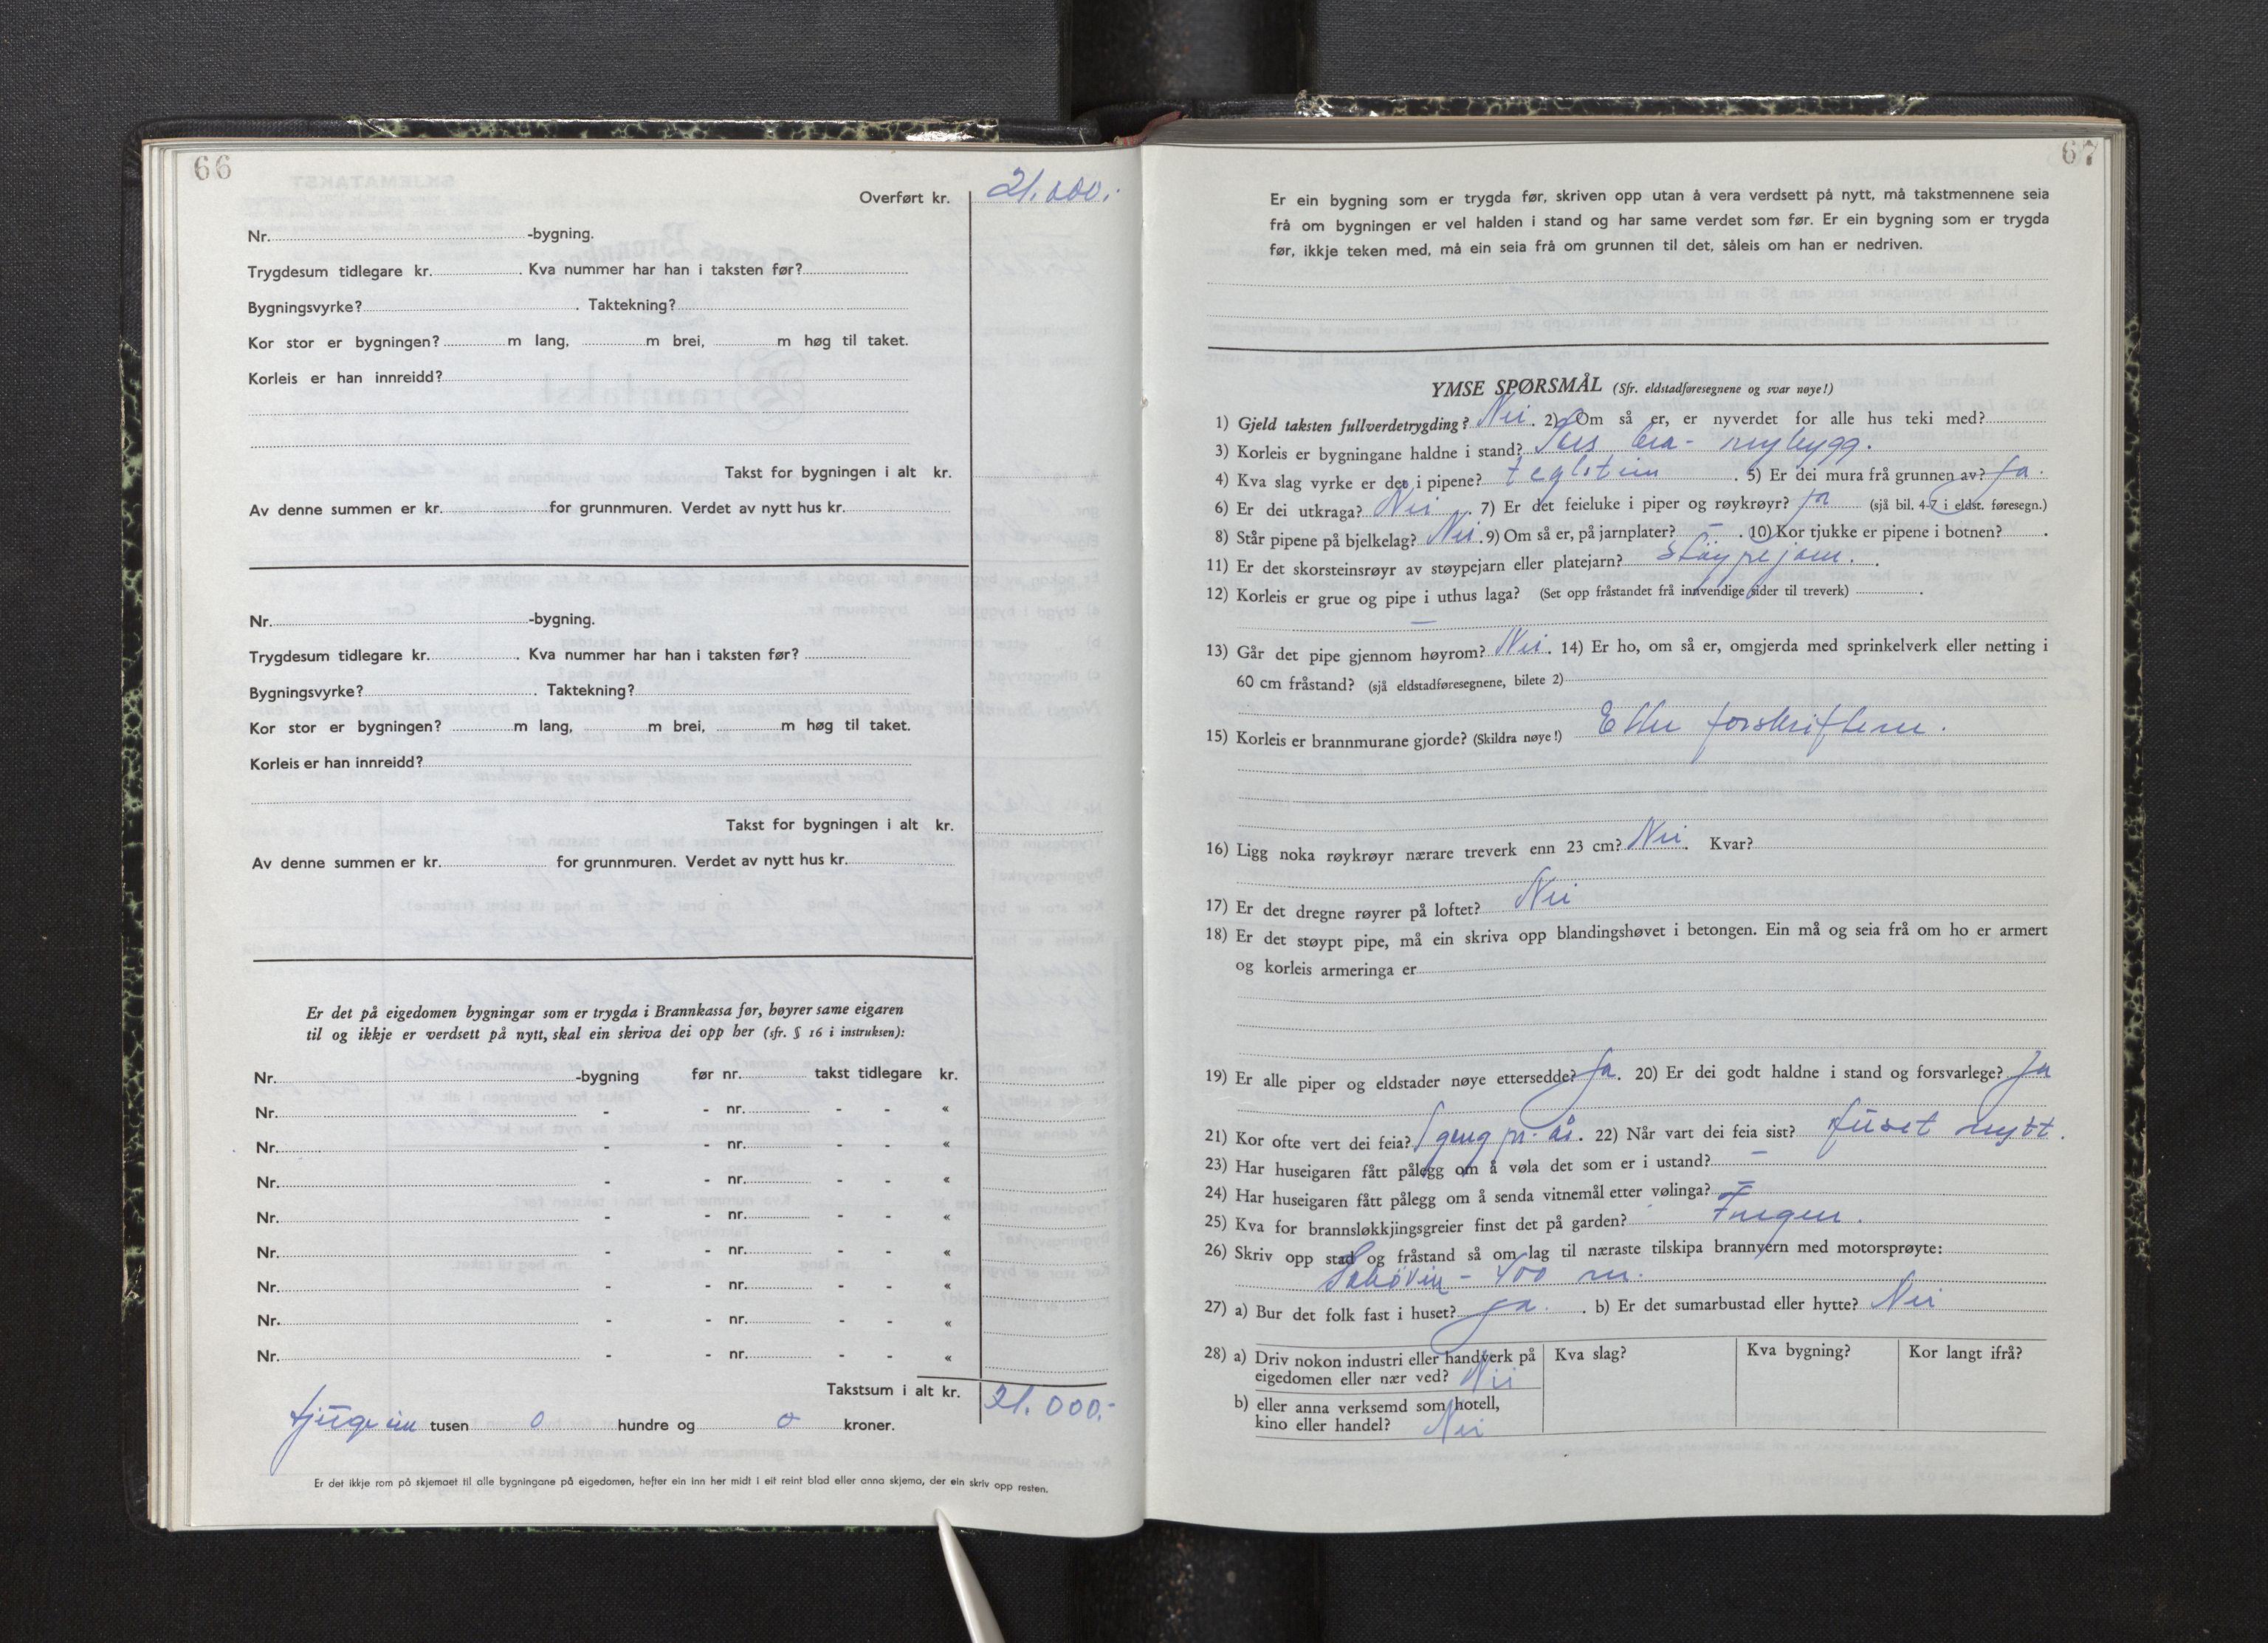 66
Overført kr. 21.000.-
Nr. -bygning.
Trygdesum tidlegare kr. . Kva nummer har han i taksten før?
Bygningsvyrke? . Taktekning?
Kor stor er bygningen? m lang, m brei, m høg til taket.
Korleis er han innreidd?
Takst for bygningen i alt kr.
Av denne summen er kr. for grunnmuren. Verdet av nytt hus kr.
Nr. -bygning.
Trygdesum tidlegare kr. . Kva nummer har han i taksten før?
Bygningsvyrke? . Taktekning?
Kor stor er bygningen? m lang, m brei, m høg til taket.
Korleis er han innreidd?
Takst for bygningen i alt kr.
Av denne summen er kr. for grunnmuren. Verdet av nytt hus kr.
Er det på eigedomen bygningar som er trygda i Brannkassa før, høyrer same eigaren
til og ikkje er verdsett på nytt, skal ein skriva dei opp her (sfr. § 16 i instruksen):
Nr. -bygning før nr. takst tidlegare kr.
Nr. - - nr. - - «
Nr. - - nr. - - «
Nr. - - nr. - - «
Nr. - - nr. - - «
Nr. - - nr. - - «
Nr. - - nr. - - «
Nr. - - nr. - - «
Nr. - - nr. - - «
Takstsum i alt kr. 21.000.-
tjugeein tusen 0 hundre og 0 kroner.
Er det ikkje rom på skjemaet til alle bygningane på eigedomen, hefter ein inn her midt i eit reint blad eller anna skjema, der ein skriv opp resten.
67
Er ein bygning som er trygda før, skriven opp utan å vera verdsett på nytt, må takstmennene seia
frå om bygningen er vel halden i stand og har same verdet som før. Er ein bygning som er trygda
før, ikkje teken med, må ein seia frå om grunnen til det, såleis om han er nedriven.
YMSE SPØRSMÅL (Sfr. eldstadføresegnene og svar nøye!)
1) Gjeld taksten fullverdetrygding? Nei. 2) Om så er, er nyverdet for alle hus teki med?
3) Korleis er bygningane haldne i stand? bra - nybygg.
4) Kva slag vyrke er det i pipene? teglstein . 5) Er dei mura frå grunnen av? Ja.
6) Er dei utkraga? Nei . 7) Er det feieluke i piper og røykrøyr? Ja (sjå bil. 4-7 i eldst. føresegn.)
8) Står pipene på bjelkelag? Nei. 9) Om så er, på jarnplater? - . 10) Kor tjukke er pipene i botnen? .
11) Er det skorsteinsrøyr av støypejarn eller platejarn? støypejarn. .
12) Korleis er grue og pipe i uthus laga? (Set opp fråstandet frå innvendige sider til treverk) .
-
13) Går det pipe gjennom høyrom? Nei. 14) Er ho, om så er, omgjerda med sprinkelverk eller netting i
60 cm fråstand? (sjå eldstadføresegnene, bilete 2)
15) Korleis er brannmurane gjorde? (Skildra nøye!) Etter forskriftene.
16) Ligg noka røykrøyr nærare treverk enn 23 cm? Nei. Kvar?
17) Er det dregne røyrer på loftet? Nei
18) Er det støypt pipe, må ein skriva opp blandingshøvet i betongen. Ein må og seia frå om ho er armert
og korleis armeringa er
19) Er alle piper og eldstader nøye ettersedde? Ja. 20) Er dei godt haldne i stand og forsvarlege? Ja
21) Kor ofte vert dei feia? 1 gong pr. år. 22) Når vart dei feia sist? Huset nytt.
23) Har huseigaren fått pålegg om å vøla det som er i ustand? -
24) Har huseigaren fått pålegg om å senda vitnemål etter vølinga? -
25) Kva for brannsløkkjingsgreier finst det på garden? Ingen.
26) Skriv opp stad og fråstand så om lag til næraste tilskipa brannvern med motorsprøyte:
- 400 m.
27) a) Bur det folk fast i huset? Ja. . b) Er det sumarbustad eller hytte? Nei
28) a) Driv nokon industri eller handverk på
eigedomen eller nær ved? Nei
Kva slag? Kva bygning? Kor langt ifrå?
b) eller anna verksemd som hotell,
kino eller handel? Nei